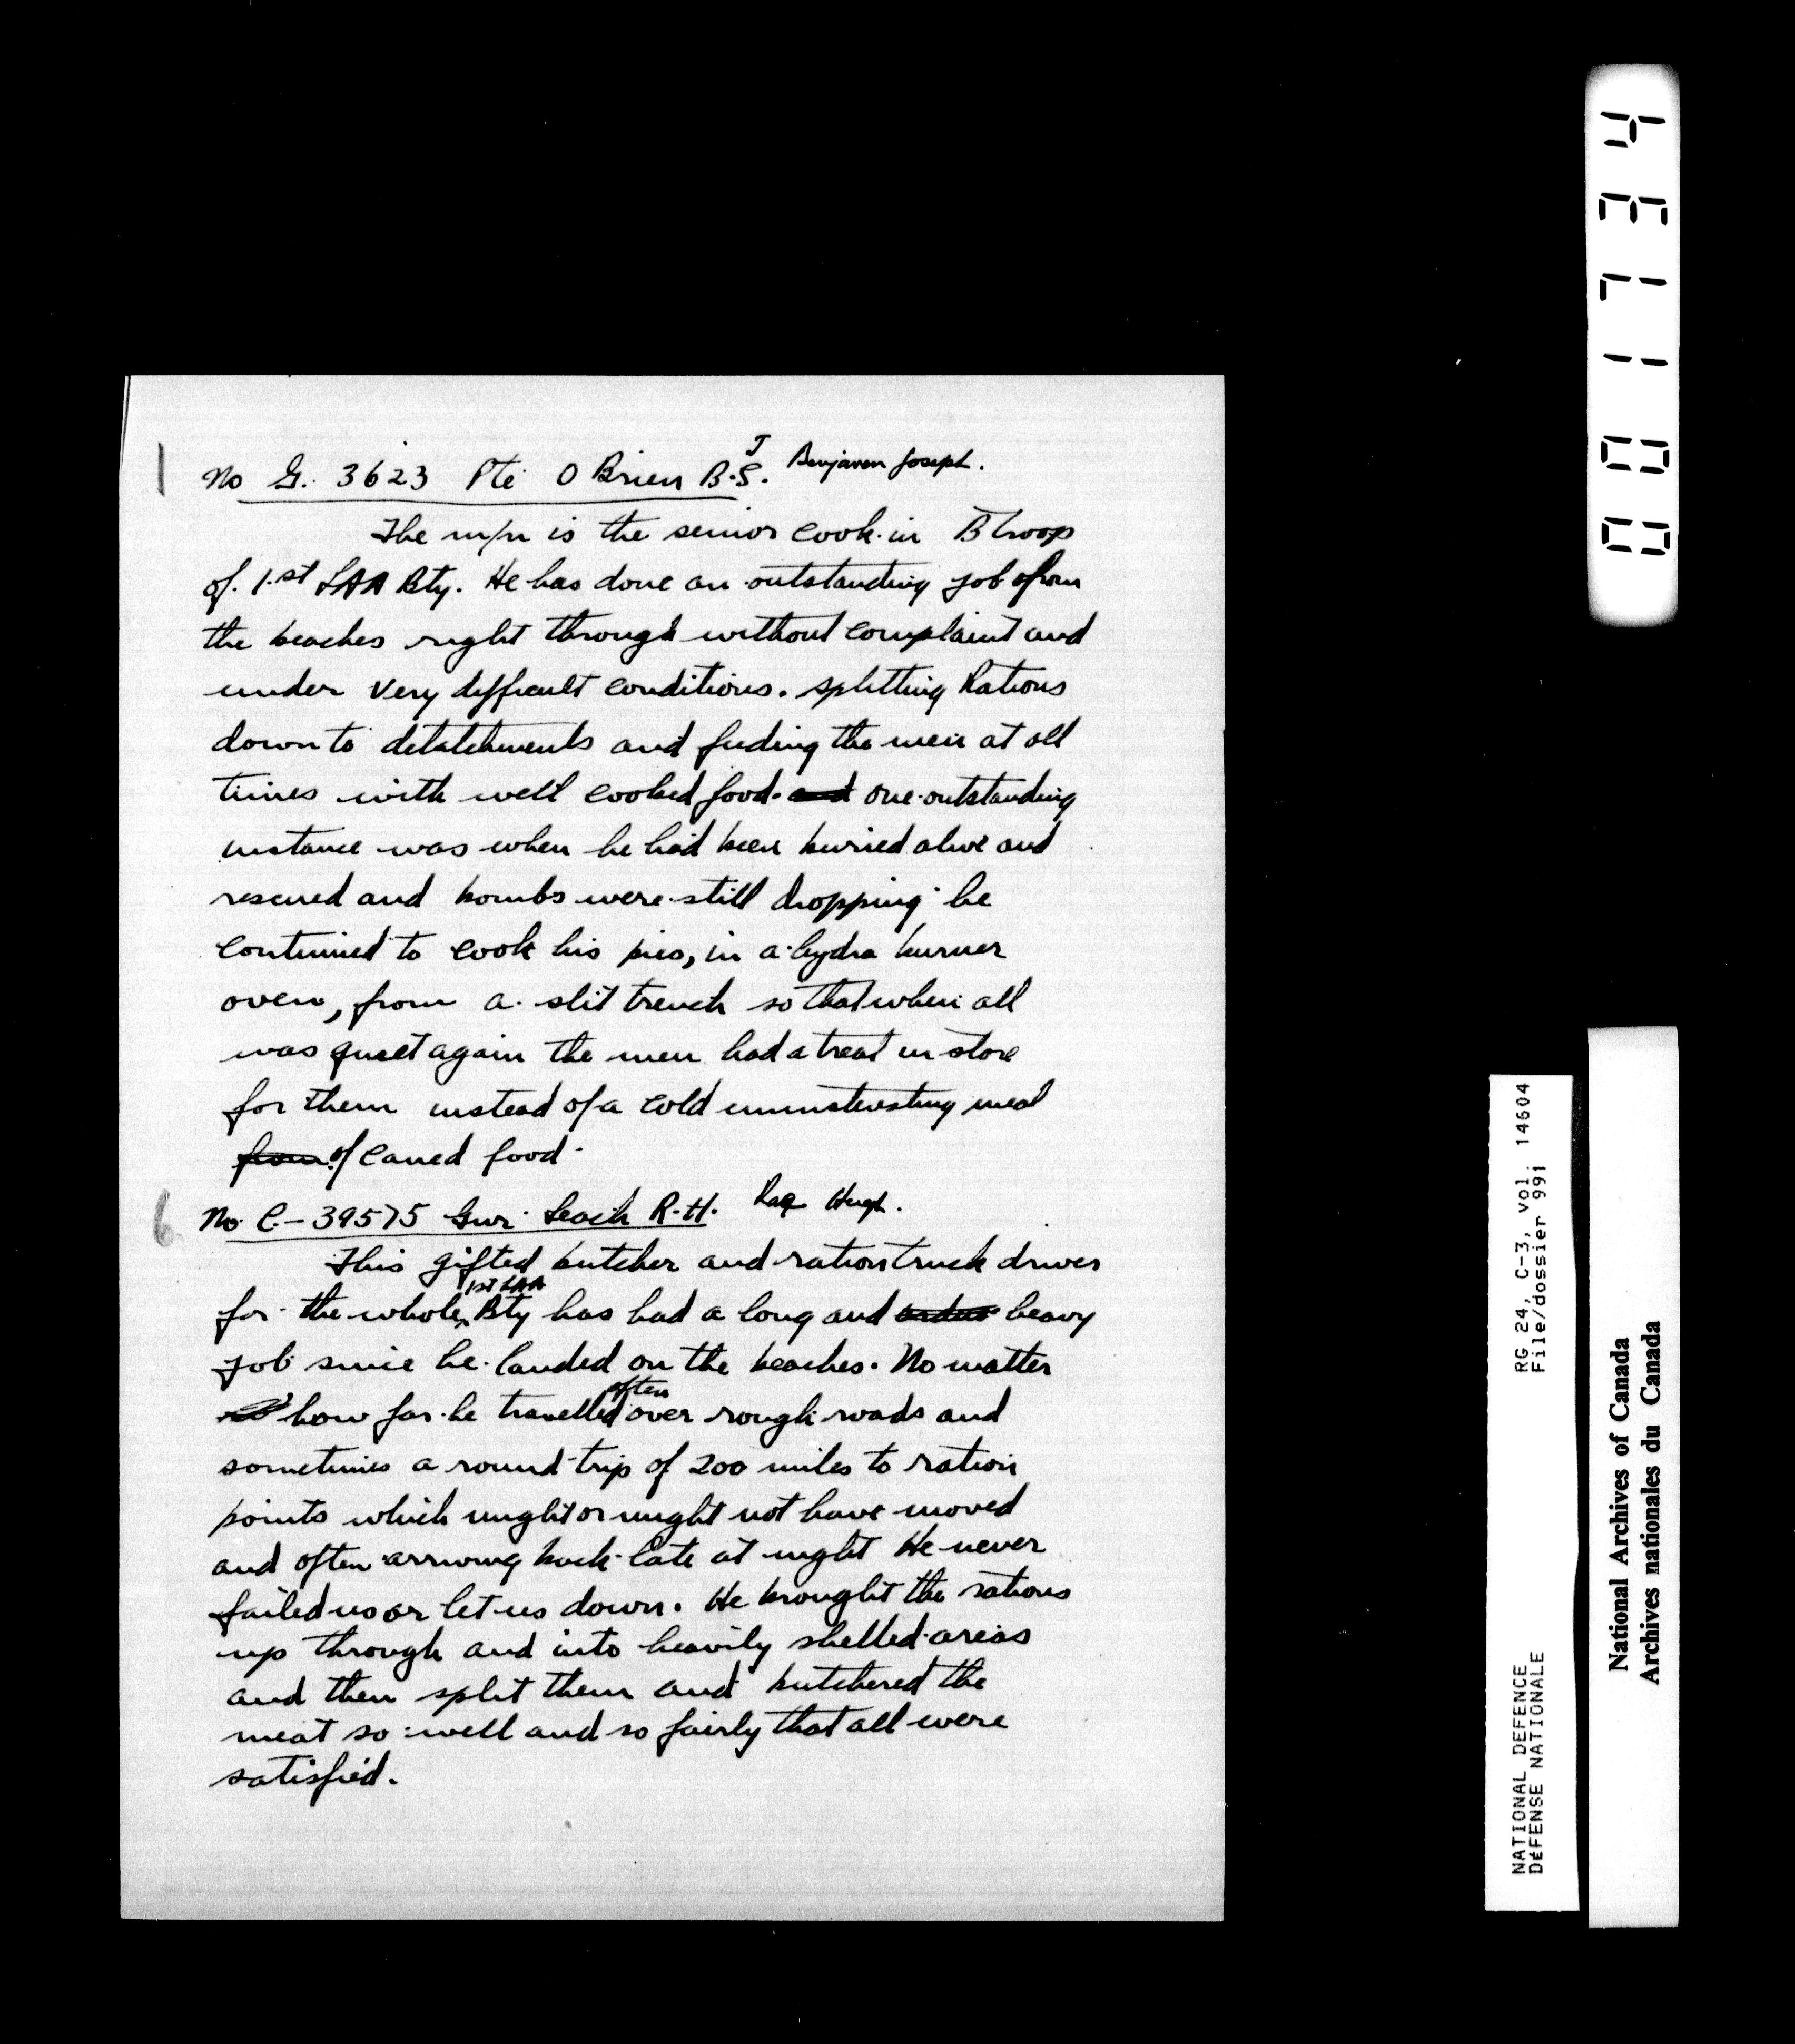 1
No G. 3623 Pte O Brien B.S. J Benjamen Joseph.
The m/n is the senior cook in B troop
of 1.st LAA Bty. He has done an outstanding job from
the beaches right through without complaint and
under very difficult conditions. splitting Rations
down to detatchments and feeding the men at all
times with well cooked food. and one outstanding
instance was when he had been buried alive and
rescued and bombs were still dropping he
continued to cook his pies, in a hydra burner
oven, from a slit trench so that when all
was quiet again the men had a treat in store
for them instead of a cold uninteresting meal
from of caned food.
6
No C-39575 Gnr Leach R.H. Hugh.
This gifted butcher and ration truck driver
for the whole 1st LAA Bty has had a long and heavy
job since he landed on the beaches. No matter
how far he travelled often over rough roads and
sometimes a round trip of 200 miles to ration
points which might or might not have moved
and often arriving back late at night He never
failed us or let us down. He brought the rations
up through and into heavily shelled areas
and then split them and butchered the
meat so well and so fairly that all were
satisfied.
NATIONAL DEFENCE RG 24, C-3, vol. 14604
DÉFENSE NATIONALE File/dossier 991
National Archives of Canada
Archives nationales du Canada